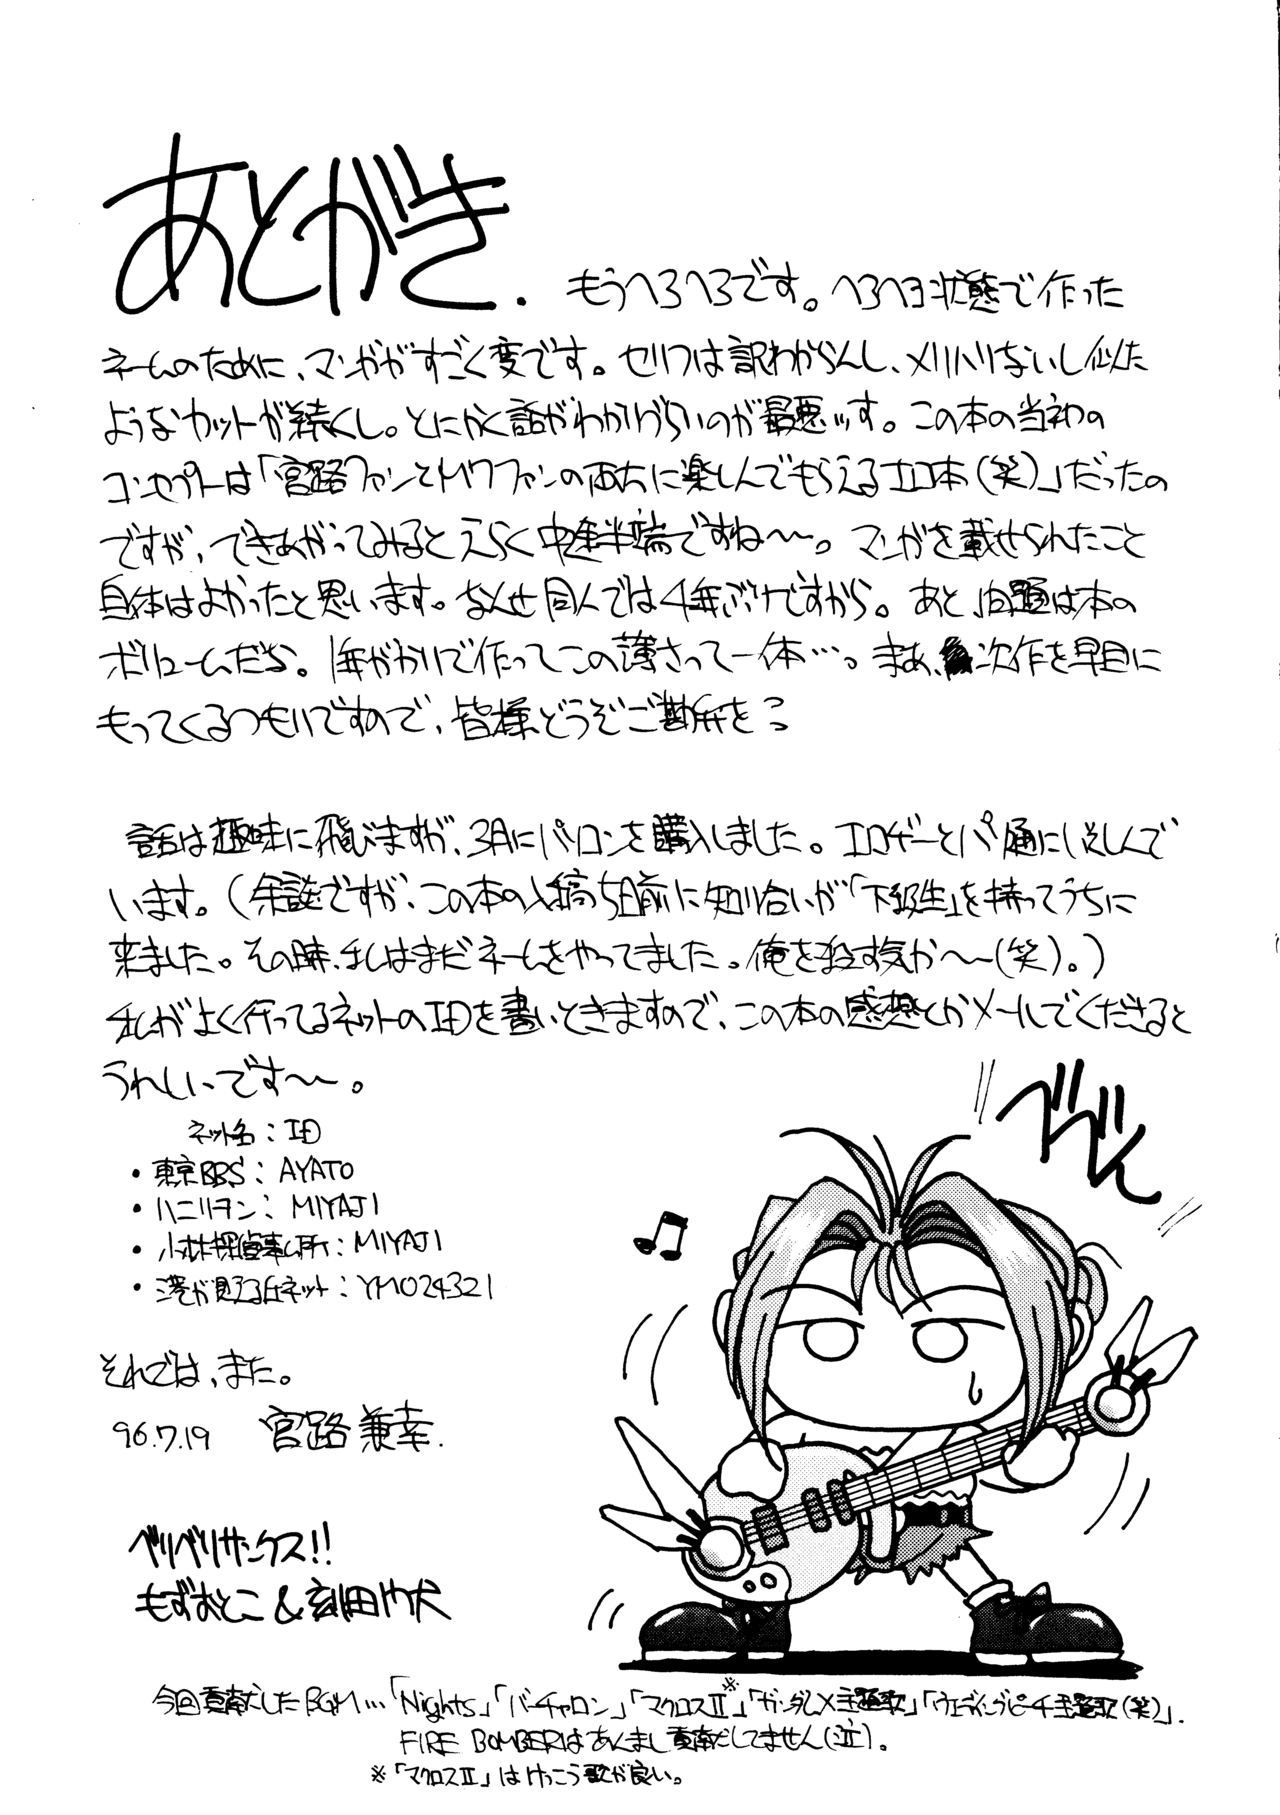 あとがき.
もうへろへろです。へろへろ状態で作った
ネームのために、マンガがすごく変です。セリフは訳わからんし、メリハリないし似た
ようなカットが続くし。とにかく話がわかりづらいのが最悪ッす。この本の当初の
コンセプトは「宮路ファンとMWファンの両方に楽しんでもらえるエロ本(笑)」だったの
ですが、できあがってみるとえらく中途半端ですね〜〜。マンガを載せられたこと
自体はよかったと思います。なんせ同人では4年ぶりですから。あと、問題は本の
ボリュームだよな。1年がかりで作ってこの薄さって一体…。まあ、次作を早目に
もってくるつもりですので、皆様どうぞご勘弁を
話は趣味に飛びますが、3月にパソコンを購入しました。エロゲーとパソ通にいそしんで
います。(余談ですが、この本の入稿5日前に知り合いが「下級生」を持ってうちに
来ました。その時、私はまだネームをやってました。俺を殺す気か〜〜(笑)。)
私がよく行ってるネットのIDを書いときますので、この本の感想とかメールでくださると
うれしいです〜〜。
ネット名：ID
・東京BBS：AYATO
・ハニリヲン：MIYAJI
・小林探偵事ム所：MIYAJI
・港が見える丘ネット：YM024321
ブブン
それでは、また。
96.7.19 宮路兼幸.
ベリベリサンクス!!
もずおとこ&刻田門大
今回貢献したBGM…「Nights」「バーチャロン」「マクロスⅡ※」「ガンダムX主題歌」「ウェディングピーチ主題歌(笑)」.
FIRE BOMBERはあんまし貢献してません(泣)。
※「マクロスⅡ」はけっこう歌が良い。